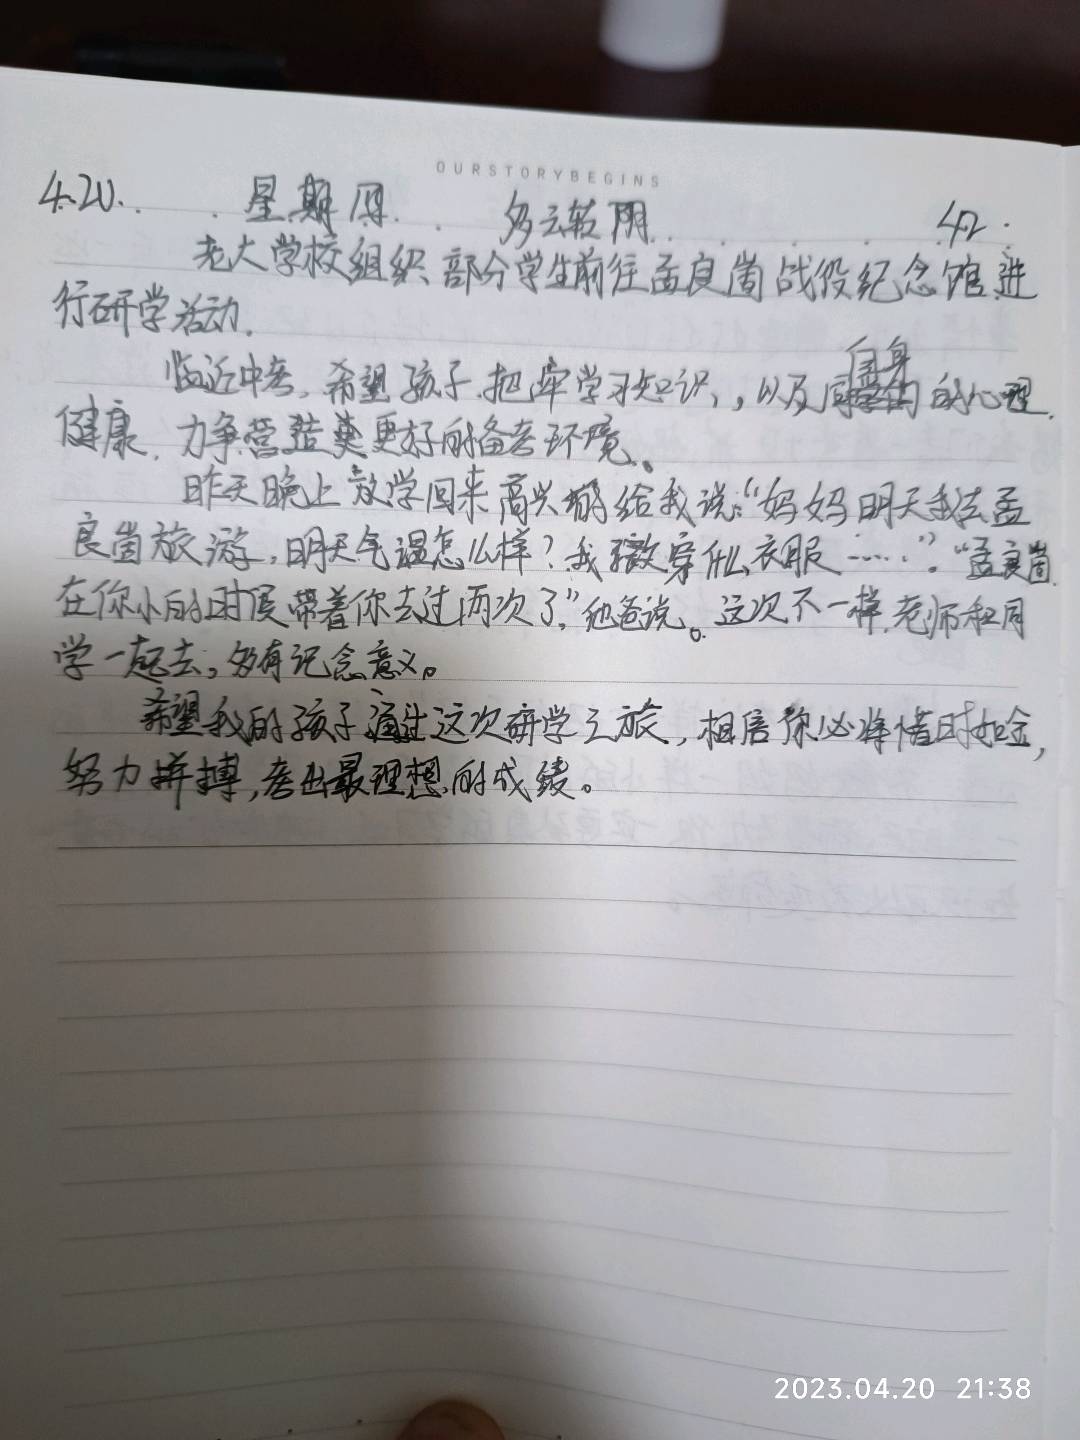 OURSTORYBEGINS
4.20. 星期四 多云转阴 42
老大学校组织部分学生前往孟良崮战役纪念馆进
行研学活动.
临近中考,希望孩子.把牢学习知识,,以及自身的心理
健康.力争营造更好的备考环境。
昨天晚上放学回来高兴的给我说:“妈妈明天我去孟
良崮旅游,明天气温怎么样?我该穿什么衣服……”.“孟良崮
在你小的时候带着你去过两次了”他爸说。这次不一样,老师和同
学一起去,多有记念意义。
希望我的孩子通过这次研学之旅,相信你必将惜时如金,
努力拼搏,考出最理想的成绩。
2023.04.20 21:38